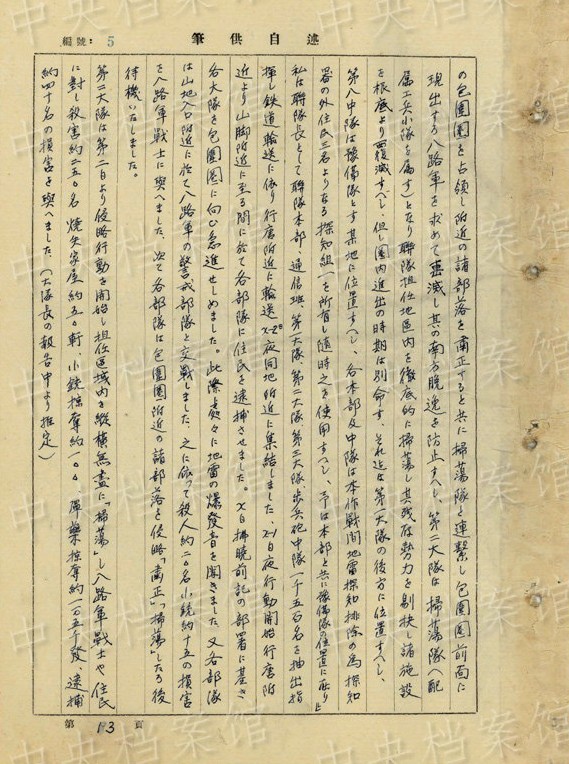 述自供筆
編號：5
の包圍圈を占領し附近の諸部落を肅正すると共に掃蕩隊と連繫し包圍圈前面に
現出する八路軍を求めて重滅し其の南方脱逸を防止すべし、第二大隊は掃蕩隊（配
属工兵小隊を属す）となり聯隊担任地區内を徹底的に掃蕩し其残存勢力を剔抉し諸施設
を根底より覆滅すべし、但し圏内進出の時期は別命す、それ迄は第一大隊の後方に位置すべし、
第八中隊は豫備隊とす某地に位置すべし、各本部及中隊は本作戰間地雷探知排除の為探知
器の外住民三名よりなる探知組一を所有し随時之を使用すべし、予は本部と共に豫備隊の位置に在り」
私は聯隊長として聯隊本部、通信班、第一大隊第二大隊第三大隊歩兵砲中隊一千五百名を抽出指
揮し鉄道輸送に依り行唐附近に輸送X-2日夜同地附近に集結しました、X-1日夜行動開始行唐附
近より山脚附近に至る間に於て各部隊に住民を逮捕させました。X日拂曉前記の部署に基き
各大隊を包圍圏に向ひ急進せしめました。此際處々に地雷の爆發音を聞きました又各部隊
は山地入口附近に於て八路軍の警戒部隊と交戰しました、之に依って殺人約二〇名小銃約十五の損害
を八路軍戰士に與へました、次で各部隊は包圍圏附近の諸部落を侵略「肅正」「掃蕩」したる後
待機いたしました。
第二大隊は第二日より侵略行動を開始し担任區域内を縱橫無盡に「掃蕩」し八路軍戰士や住民
に對し殺害約二五〇名燒失家屋約五〇軒、小銃掠奪約一〇〇彈藥掠奪約一万五千發、逮捕
約四十名の損害を與へました、（大隊長の報告中より推定）
第 13 頁
中央档案馆